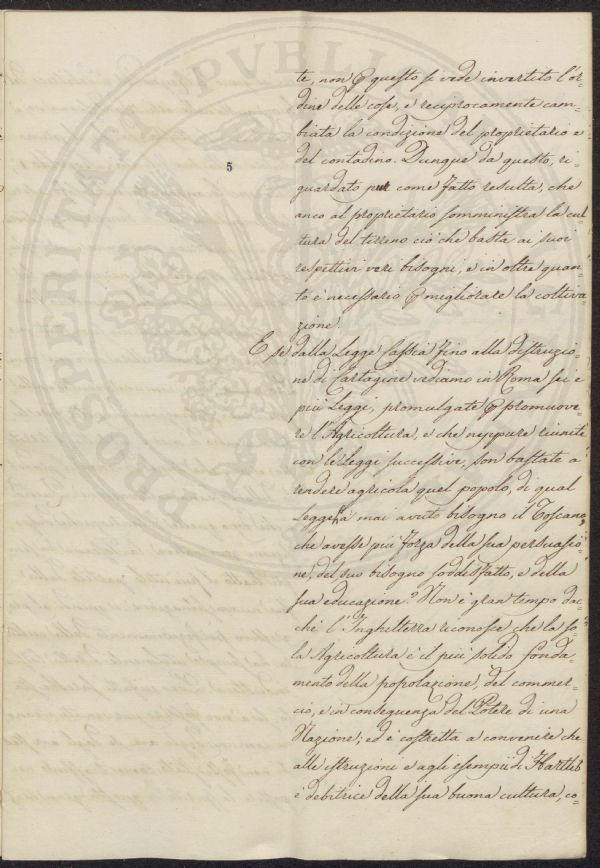 te, non p questo si vede invertito l'or-
dine delle cose, e reciprocamente cam-
biata la condizione del proprietario e
del contadino. Dunque da questo, ri-
5
guardato pur come fatto resulta, che
anco al proprietario somministra la cul-
tura del terreno ciò che basta ai suoi
respettivi veri bisogni, e in oltre quan-
to è necessario p migliorare la coltiva-
zione.
E se dalla Legge Cassia fino alla distruzio-
ne di Cartagine vediamo in Roma sei e
più Leggi, promulgate p promuove-
re l'Agricoltura, e che neppure riunite
con le Leggi successive, son bastate a
rendere agricola quel popolo, di qual
Legge ha mai avuto bisogno il Toscano,
che avesse più forza della sua persuasio-
ne, del suo bisogno soddisfatto, e della
sua educazione? Non è gran tempo dac-
chè l'Inghilterra riconosce che la so-
la Agricoltura è il più solido fonda-
mento della popolazione, del commer-
cio, e in conseguenza del Potere di una
Nazione; ed è costretta a convenire che
alle istruzioni e agli esempii di Hartlib
è debitrice della sua buona cultura, co-
PROSPERITATI PVBLI